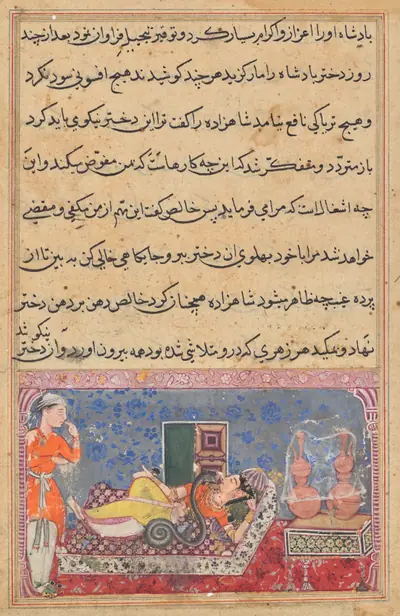 بادشاه اورا اعزاز و اکرام بسیار کرد و توقیر و تبجیل فراوان نمود بعد از چند
روز دختر بادشاه را مار گزید هر چند کوشیدند هیچ افسونی سود نکرد
و هیچ تریاکی نافع نیامد شاهزاده را گفت ترا این دختر نیکوی باید کرد
باز متردد و متفکر شد که این چه کارهاست که بمن مفوض میکند و این
چه اشغالست که مرا می فرماید پس خالص گفت این مهم از من مکفی و مقضی
خواهد شد مرا با خود بهلوی ان دختر ببر و جایگاهی خالی کن به بین تا از
پرده غیب چه ظاهر میشود شاهزاده همچنان کرد خالص دهن بر دهن دختر
نهاد و بمکید هر زهری که در و متلاشی شده بود همه بیرون اورد و ان دختر نیکو شد